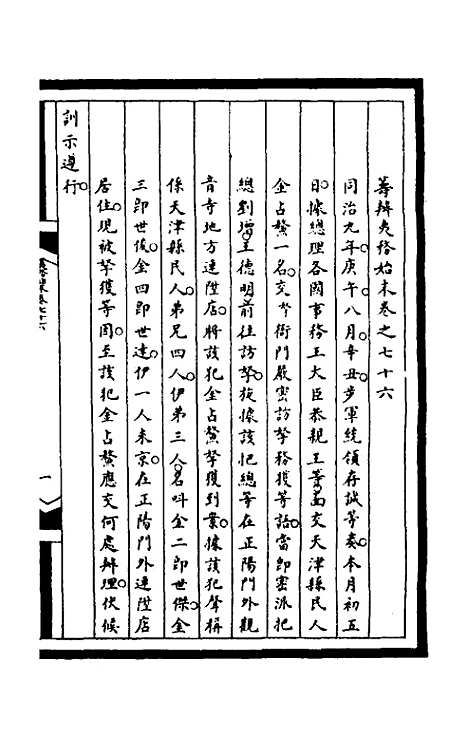 籌辦夷務始末卷之七十六
同治九年庚午八月辛丑步軍統領存誠等奏本月初五
日據總理各國事務王大臣恭親王等面交天津縣民人
金占鰲一名交臣衙門嚴密訪拏務獲等諭當即密派把
總劉增王德明前往訪拏旋據該把總等在正陽門外觀
音寺地方連陞店將該犯金占鰲拏獲到案據該犯聲稱
係天津縣民人弟兄四人伊弟三人名叫金二即世傑金
三即世俊金四即世達伊一人來京在正陽門外連陞店
居住現被拏獲等因至該犯金占鰲應交何處辦理伏候
訓示遵行